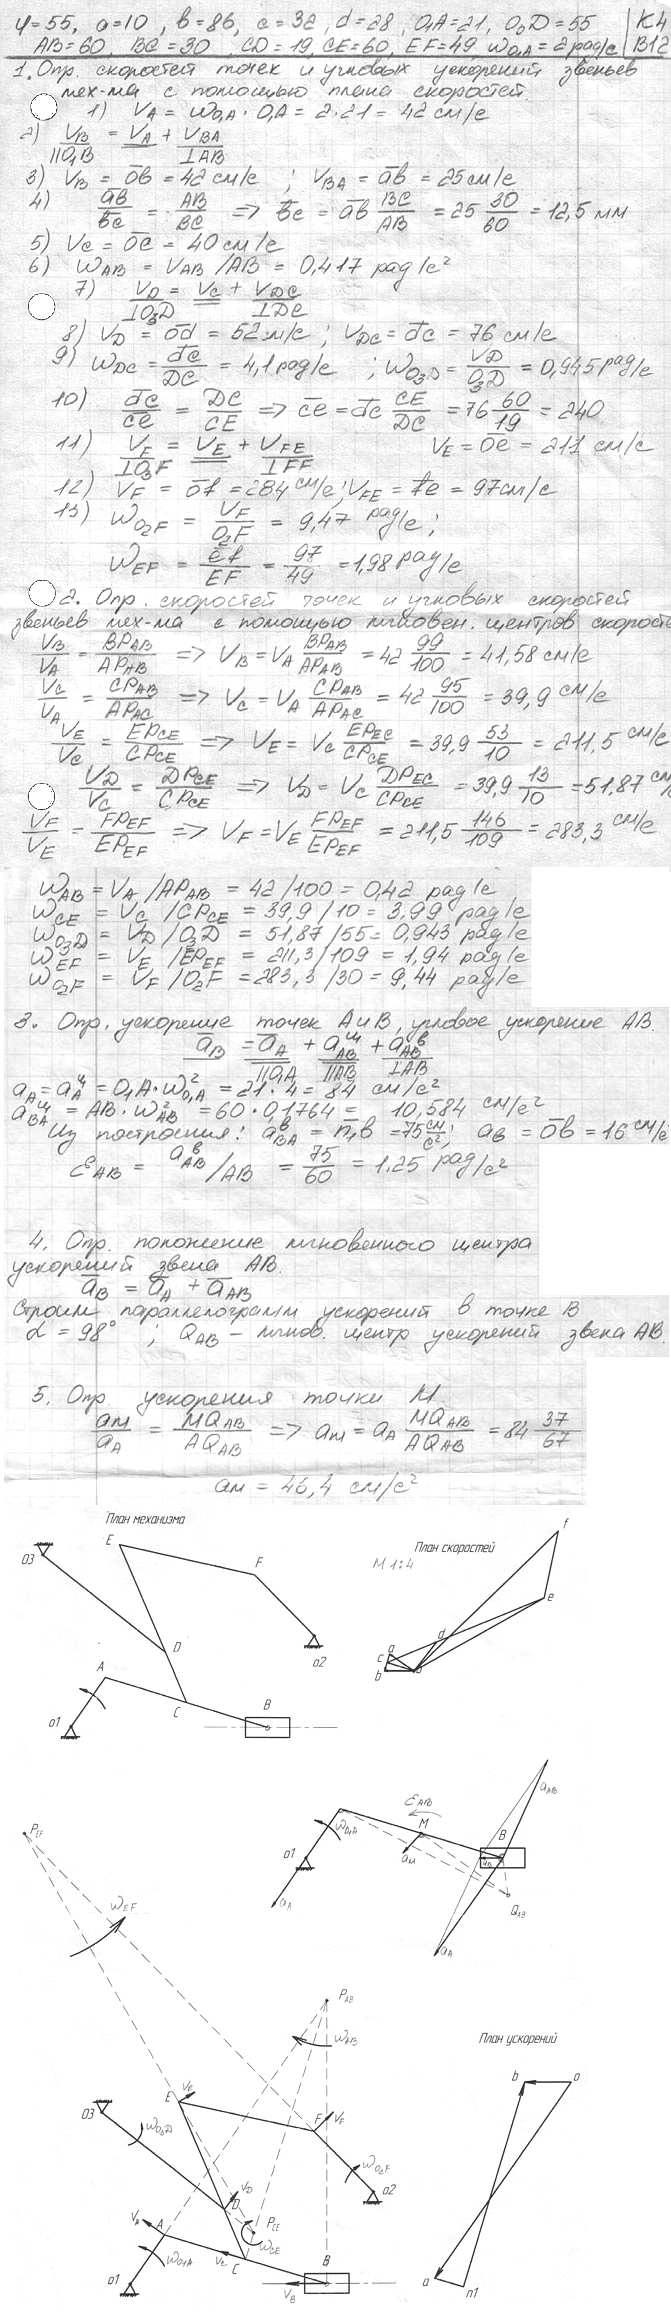 φ=55, a=10, в=86, c=32, d=28, O₁A=21, O₃D=55
AB=60, BC=30, CD=19, CE=60, EF=49 ω₀₁A=2 рад/с
K4
B12
1. Опр. скоростей точек и угловых ускорений звеньев
мех-ма с помощью плана скоростей.
1) VA = ωO₁A · O₁A = 2·21 = 42 см/с
2) VB = VA + VBA
||O₁B ⊥AB
3) VB = ob = 42 см/с ; VBA = ab = 25 см/с
4) ab/bc = AB/BC => bc = ab BC/AB = 25 30/60 = 12,5 мм
5) VC = oc = 40 см/с
6) ωAB = VAB/AB = 0,417 рад/с²
7) VD = VC + VDC
⊥O₃D ⊥DC
8) VD = od = 52 см/с ; VDC = dc = 76 см/с
9) ωDC = dc/DC = 4,1 рад/с ; ωO₃D = VD/O₃D = 0,945 рад/с
10) dc/ce = DC/CE => ce = dc CE/DC = 76 60/19 = 240
11) VF = VE + VFE VE = oe = 211 см/с
⊥O₃F ⊥FF
12) VF = of = 284 см/с ; VFE = fe = 97 см/с
13) ωO₂F = VF/O₂F = 9,47 рад/с ;
ωEF = ef/EF = 97/49 = 1,98 рад/с
2. Опр. скоростей точек и угловых скоростей
звеньев мех-ма с помощью мгновен. центров скоросте
VB/VA = BPAB/APAB => VB = VA BPAB/APAB = 42 99/100 = 41,58 см/с
VC/VA = CPAB/APAC => VC = VA CPAB/APAC = 42 95/100 = 39,9 см/с
VE/VC = EPCE/CPCE => VE = VC EPEC/CPCE = 39,9 53/10 = 211,5 см/с
VD/VC = DPCE/CPCE => VD = VC DPEC/CPCE = 39,9 13/10 = 51,87 см/
VF/VE = FPEF/EPEF => VF = VE FPEF/EPEF = 211,5 146/109 = 283,3 см/с
ωAB = VA /APAB = 42/100 = 0,42 рад/с
ωCE = VC /CPCE = 39,9/10 = 3,99 рад/с
ωO₃D = VD/O₃D = 51,87/55 = 0,943 рад/с
ωEF = VE /EPEF = 211,3/109 = 1,94 рад/с
ωO₂F = VF /O₂F = 283,3/30 = 9,44 рад/с
3. Опр. ускорение точек A и B, угловое ускорение AB.
aB = aA + aцAB + aвAB
||O₁A ||AB ⊥AB
aA = aцA = O₁A·ω²O₁A = 21·4 = 84 см/с²
aцBA = AB·ω²AB = 60·0,1764 = 10,584 см/с²
Из построения: aвBA = n₁в = 75 см/с² ; aB = oв = 16 см/с
εAB = aвAB/AB = 75/60 = 1,25 рад/с²
4. Опр. положение мгновенного центра
ускорений звена AB.
aB = aA + aAB
Строим параллелограмм ускорений в точке B
α = 98° ; QAB – мгнов. центр ускорений звена AB.
5. Опр ускорения точки M
aм/aA = MQAB/AQAB => aм = aA MQAB/AQAB = 84 37/67
aм = 46,4 см/с²
План механизма
E
o3
F
D
o2
A
C
B
o1
План скоростей
M 1:4
f
e
d
a
c
b
o
aAB
εAB
M
B
ωO₁A
o1
aM
aB
QAB
aA
aA
PEF
ωEF
PAB
ωAB
План ускорений
b
o
a
n1
VE
E
o3
ωO₃D
F
VF
ωO₂F
o2
VD
D
PCE
ωCE
VA
A
VC
C
B
ωO₁A
o1
VB